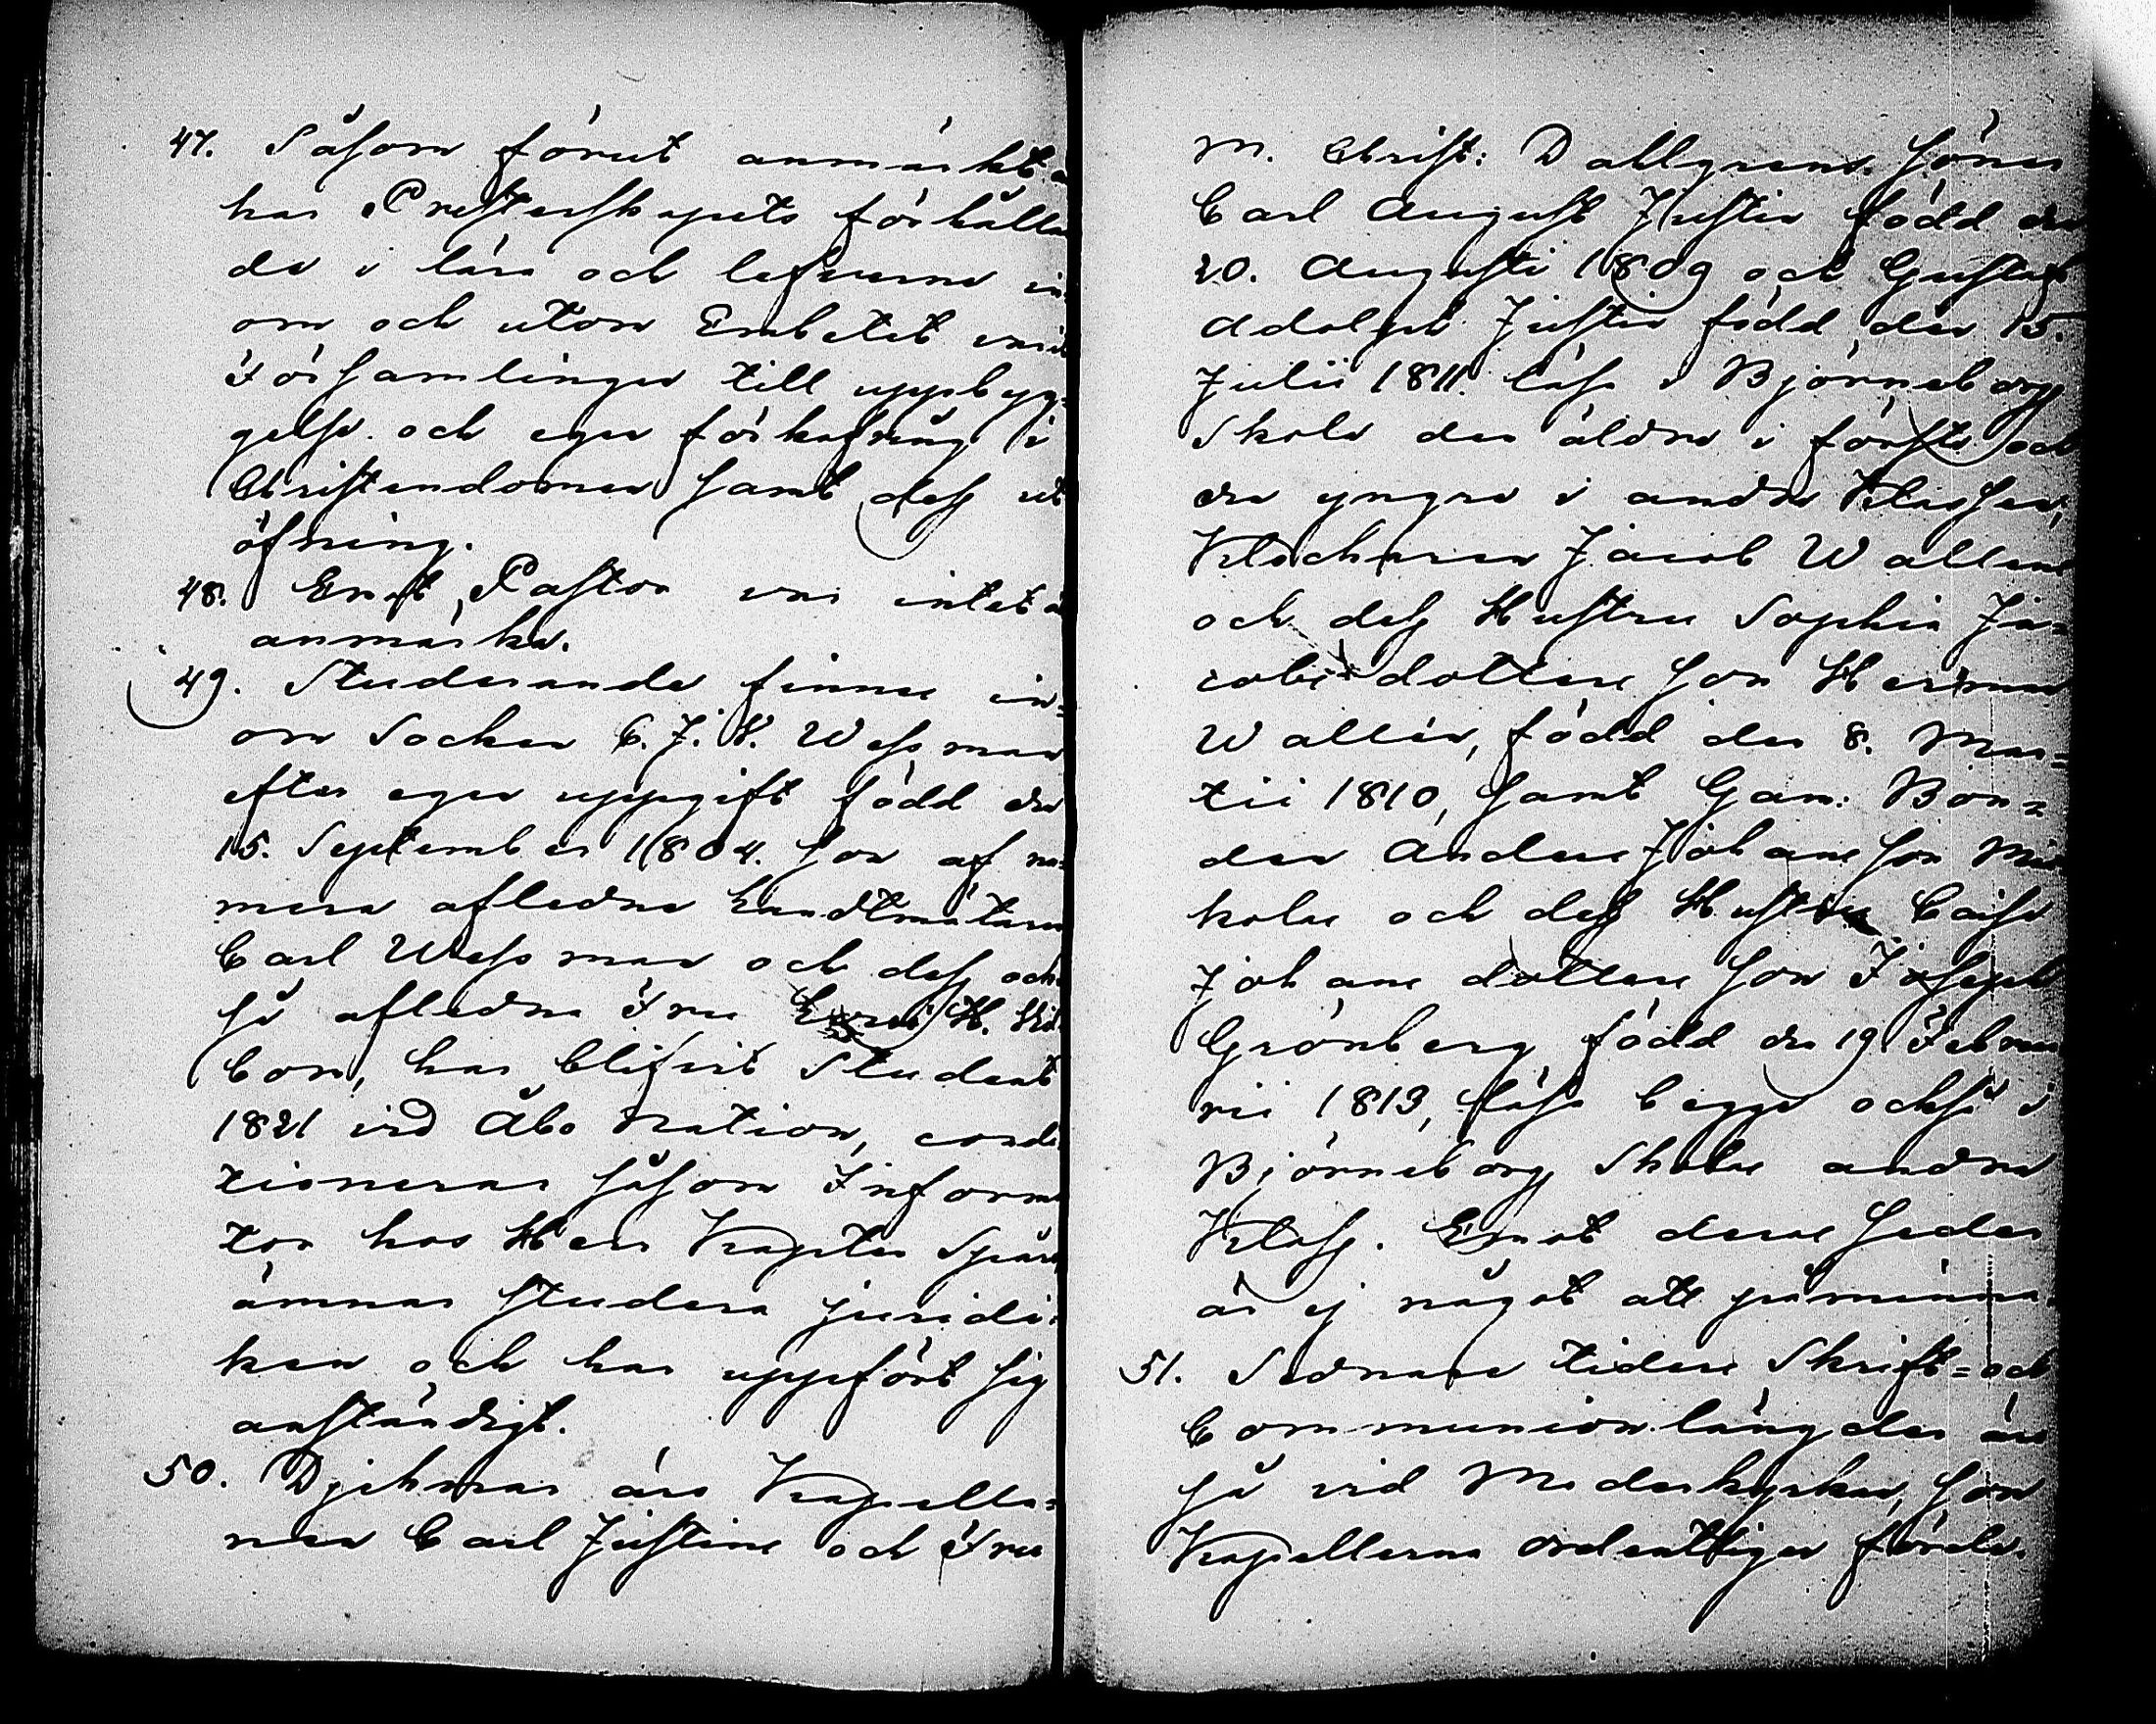 47. Såsom förut anmärkt
har Presterskapets förhållan
de i lära och lefverne in
om och utom Embetet varit
Församlingen till uppbyg=
gelse och egen förkofring i
Christendomen samt dess ut
öfning.
48. Emot Pastor var intet a
anmärka.
49. Studerande finnes in=
om Socken C. J. V. Wessman
efter egen uppgift född den
15. September 1804. Son af nu
mera afledne Landtmätaren
Carl Wessman och dess ock
så afledna Fru H.
born, har blifvit Student
1821 vid Åbo Nation, condi
tionerar såsom Informa
tor hos Herr Kapten Spåre
ämnar studera juridi=
ken och har uppfört sig
anständigt.
50. Djeknar äro Kapella=
nen Carl Justins och Fru
M. Christ: Dahlgrens Söner
Carl August Justin född den
20. Augusti 1809 och Gustaf
Adolph Justin född den 15.
Julii 1811 läsa i Björneborgs
Skola den äldre i första och
den yngre i andra Klassen,
Klockaren Jacob Wallens
och dess Hustru Sophia Ja=
cobs dotters son Herman
Wallén, född den 8. Mar=
tii 1810, samt Gam: Bon=
den Anders Johans son Mis
kola och dess Hustru Caisa
Johans dotters son Joseph
Grönberg född den 19 Februa
rii 1813, läsa begge också i
Björneborgs Skolas andra
Klass. Emot deras seder
är ej något att påminna.
51. Sednare tiders Skrift= och
Communion längder äro
så vid Moderkyrkan, som
Kapellerna ordentligen förde.